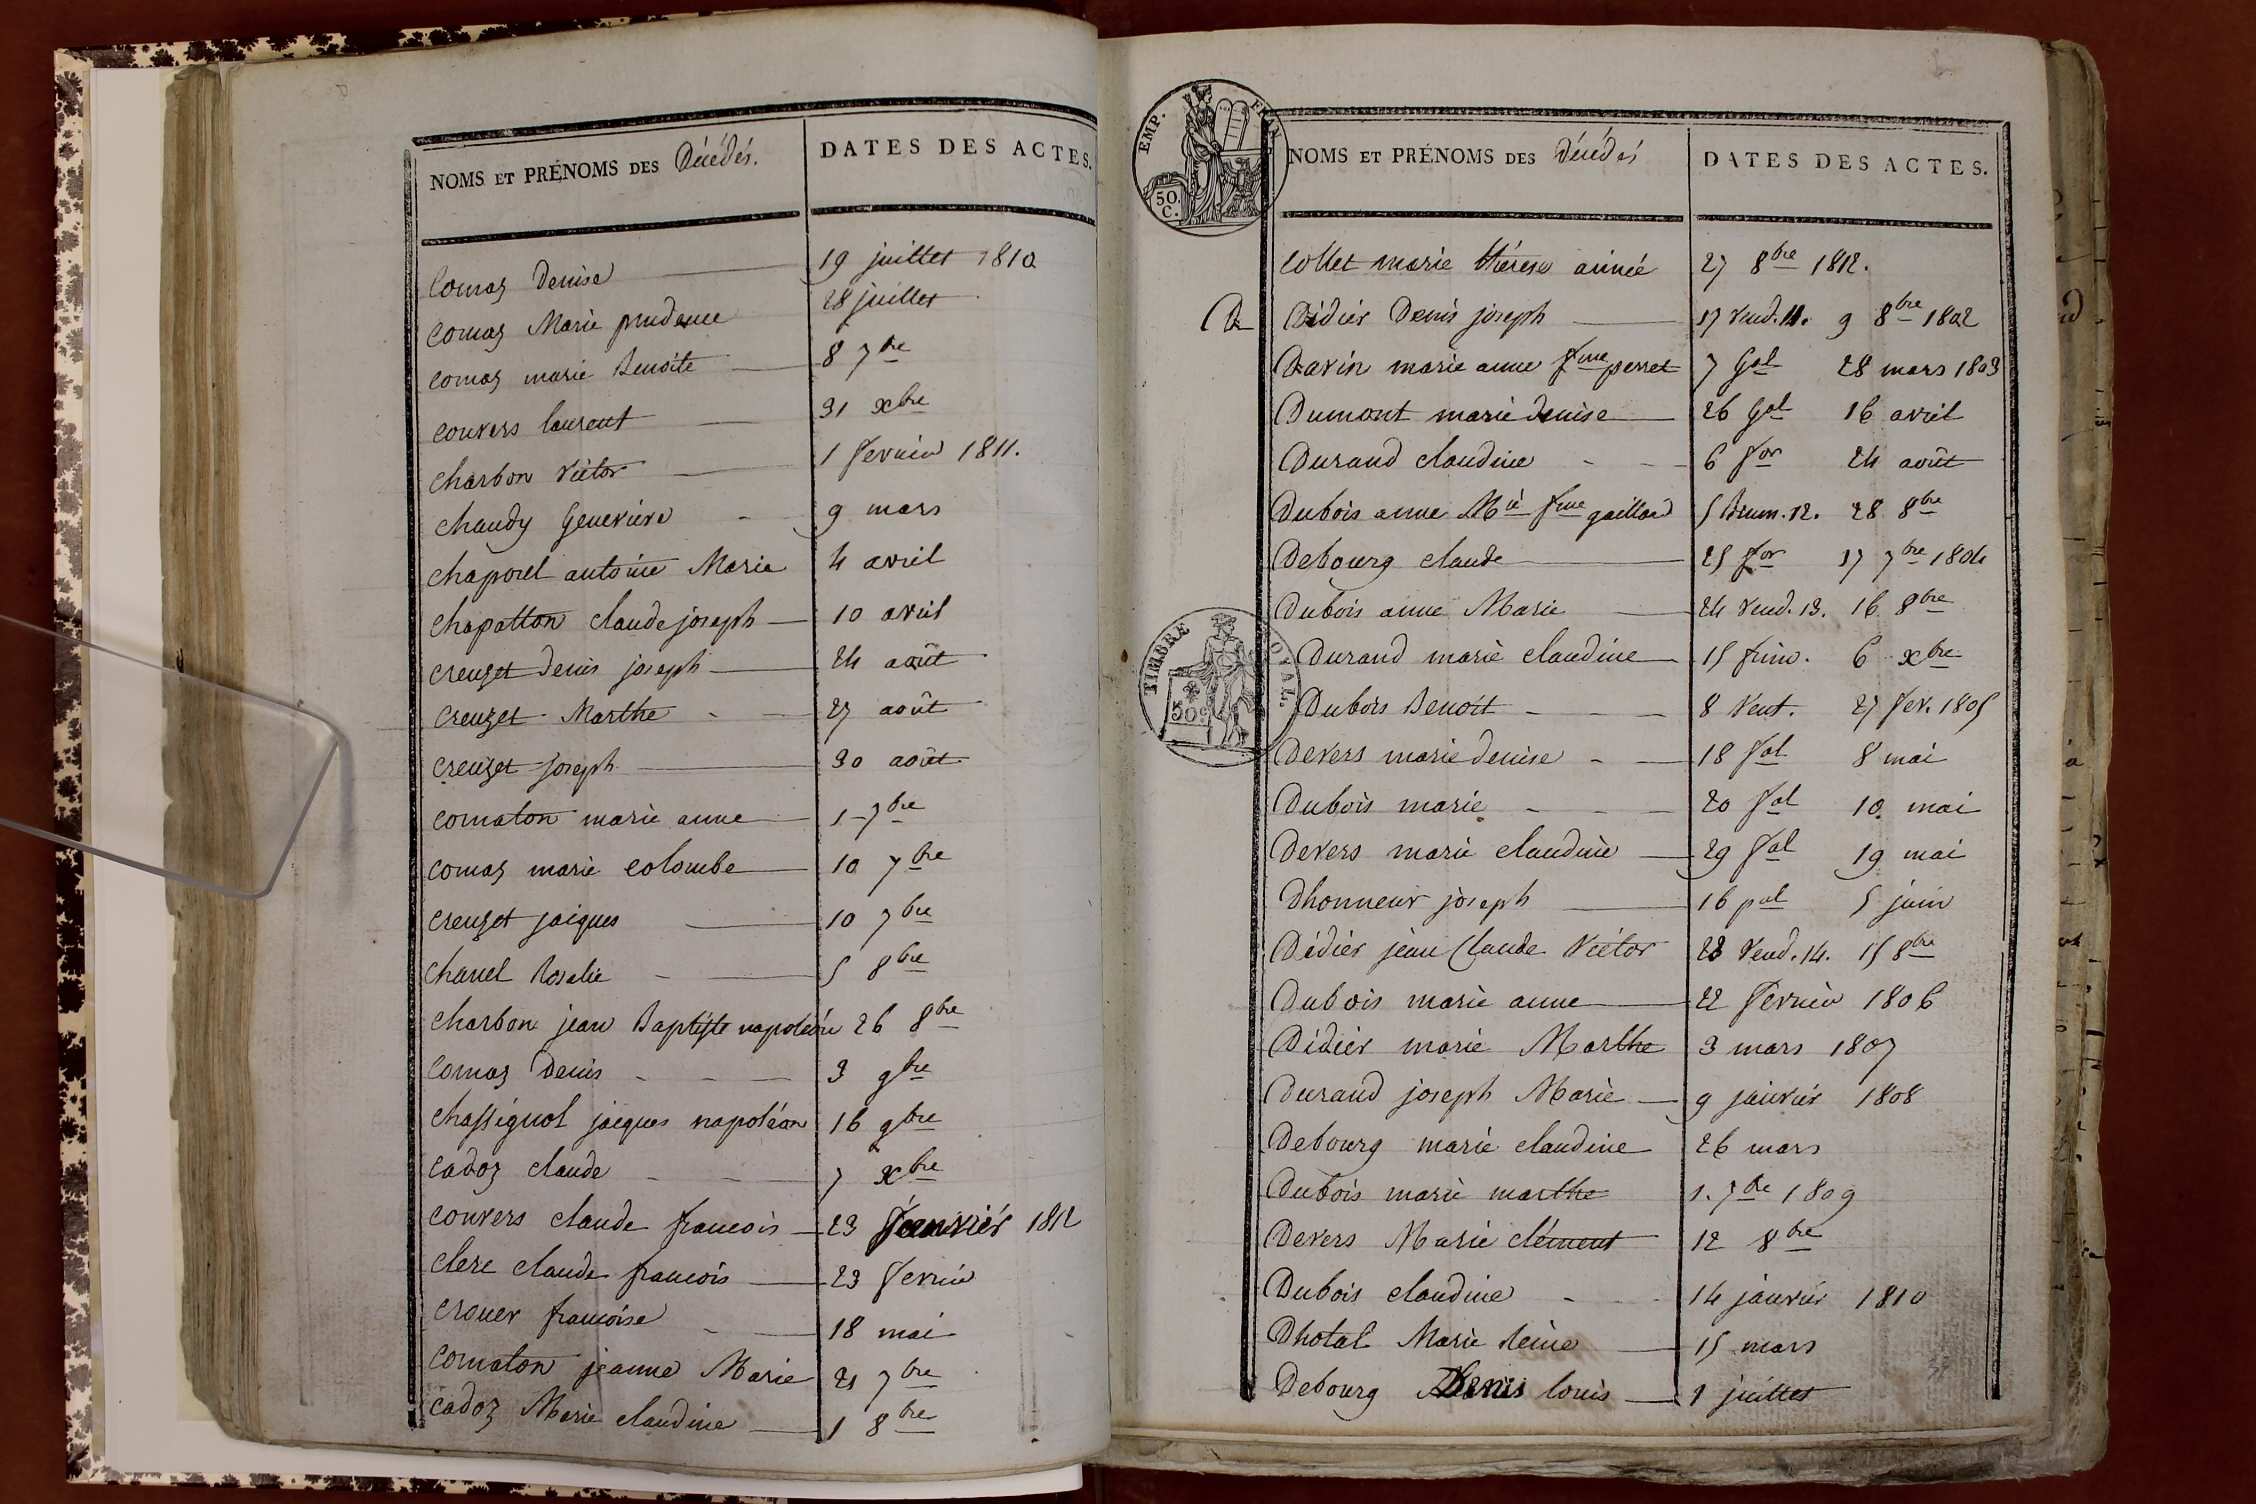 NOMS ET PRÉNOMS DES Décédés. DATES DES ACTES.
Comaz Denise 19 juillet 1810
Comaz Marie prudence 28 juillet
Comaz marie Benoite 8 7bre
Convers laurent 31 xbre
Charbon Victor 1 fevrier 1811.
Chaudy Genevieve 9 mars
Chapouel antoine Marie 4 avril
Chapatton claude joseph 10 avril
Creuzet Denis joseph 24 août
Creuzet Marthe 27 août
Creuzet joseph 30 août
Comaton marie anne 1 7bre
Comaz marie colombe 10 7bre
Creuzet jacques 10 7bre
Chanel Rosalie 5 8bre
Charbon jean Baptiste napoléon 26 8bre
Comaz Denis 3 9bre
Chassignol jacques napoléon 16 9bre
Cadoz claude 7 xbre
Convers claude francois 23 janvier 1812
Clerc claude francois 23 fevrier
Crouer francoise 18 mai
Comaton jeanne Marie 21 7bre
Cadoz Marie claudine 1 8bre
EMP.
50. C.
NOMS ET PRÉNOMS DES Décédés DATES DES ACTES.
Collet marie thérese aimée 27 8bre 1812.
D Didier Denis joseph 17 vend. 11. 9 8bre 1802
Davin marie anne fme perret 7 Gal 28 mars 1803
Dumont marie denise 26 Gal 16 avril
Durand claudine 6 for 24 août
Dubois anne Mie fme gaillard 5 Brum. 12. 28 8bre
Debourg claude 25 for 17 7bre 1804
Dubois anne Marie 24 Vend. 13. 16 8bre
TIMBRE
50c
Durand marie claudine 15 frim. 6 xbre
Dubois Benoit 8 Vent. 27 fev. 1805
Devers marie denise 18 fal 8 mai
Dubois marie 20 fal 10 mai
Devers marie claudine 29 fal 19 mai
Dhonneur joseph 16 pal 5 juin
Didier jean Claude Victor 23 Vend. 14. 15 8bre
Dubois marie anne 22 fevrier 1806
Didier marie Marthe 3 mars 1807
Durand joseph Marie 9 janvier 1808
Debourg marie claudine 26 mars
Dubois marie marthe 1. 7bre 1809
Devers Marie clément 12 8bre
Dubois claudine 14 janvier 1810
Dhotal Marie Reine 15 mars
Debourg Denis louis 1 juillet